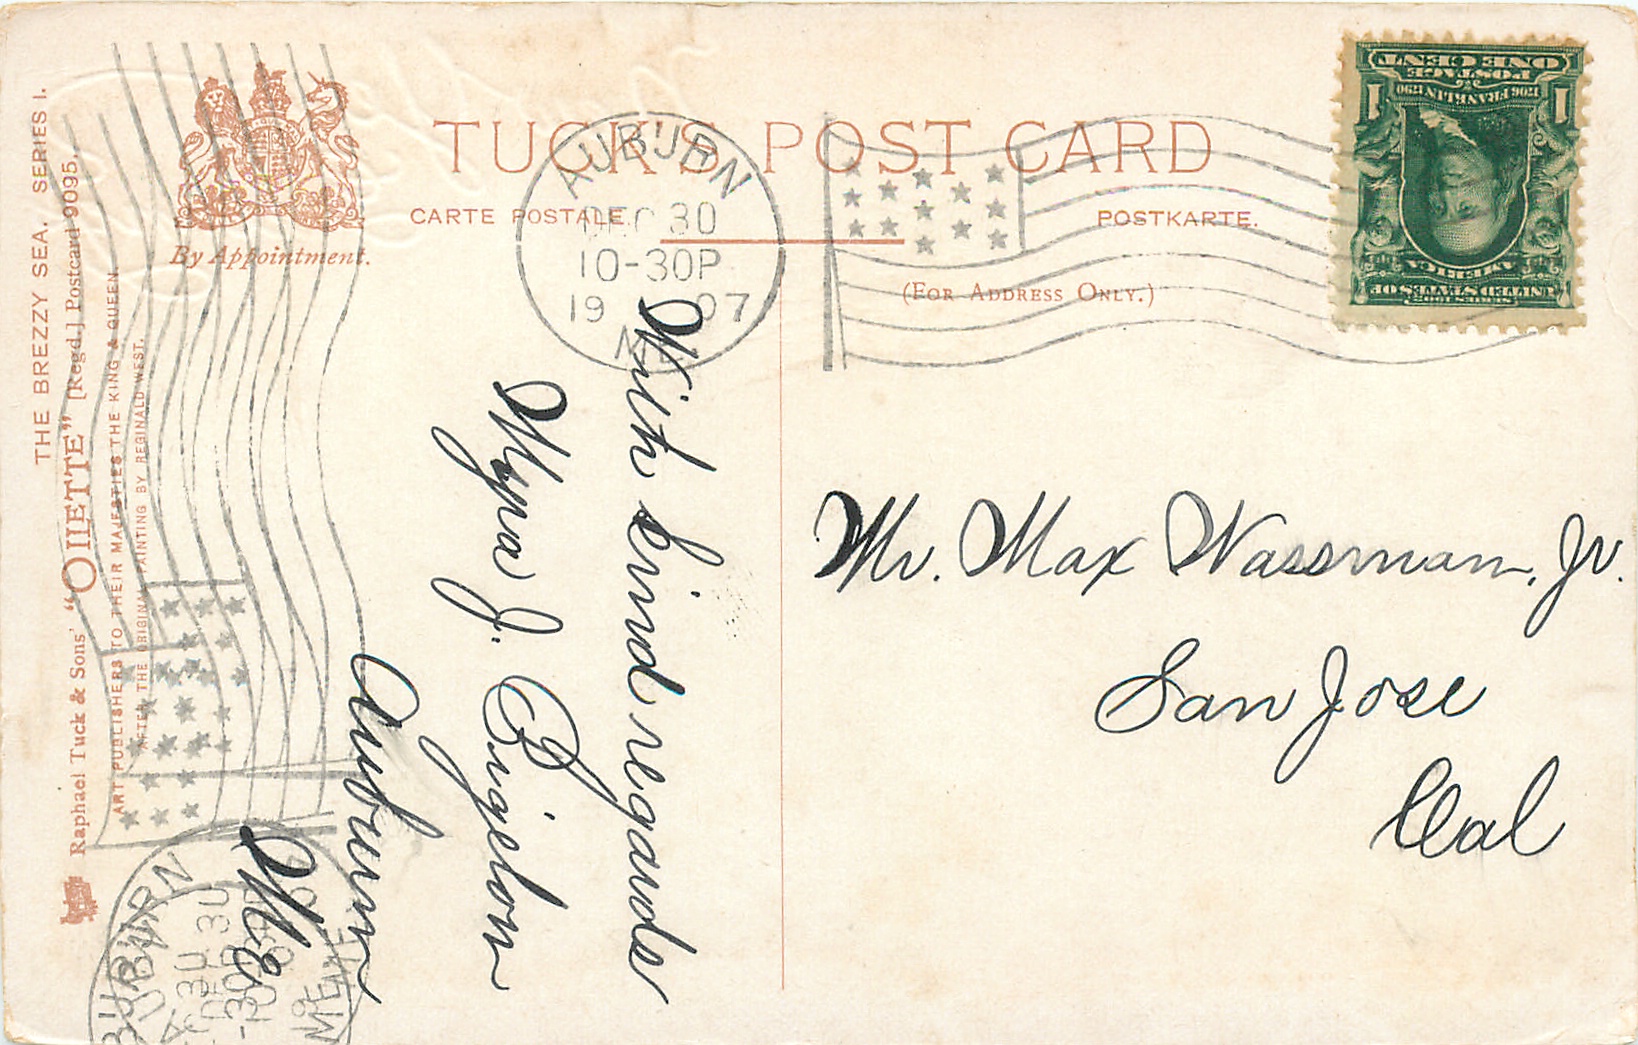 THE BREZZY SEA. SERIES I.
Raphael Tuck & Sons' "OILETTE" [Regd.] Postcard 9095.
ART PUBLISHERS TO THEIR MAJESTIES THE KING & QUEEN.
AFTER THE ORIGINAL PAINTING BY REGINALD WEST.
By Appointment.
TUCK'S POST CARD
CARTE POSTALE.
POSTKARTE.
(FOR ADDRESS ONLY.)
AUBURN
DEC 30
10-30P
1907
ME
ONE CENT
POSTAGE
1706 FRANKLIN 1790
1 1
SERIES 1902
UNITED STATES OF
AMERICA
With kind regards
Myra J. Bigelow
Auburn
Me
Mr. Max Wassman, Jr.
San Jose
Cal
AUBURN